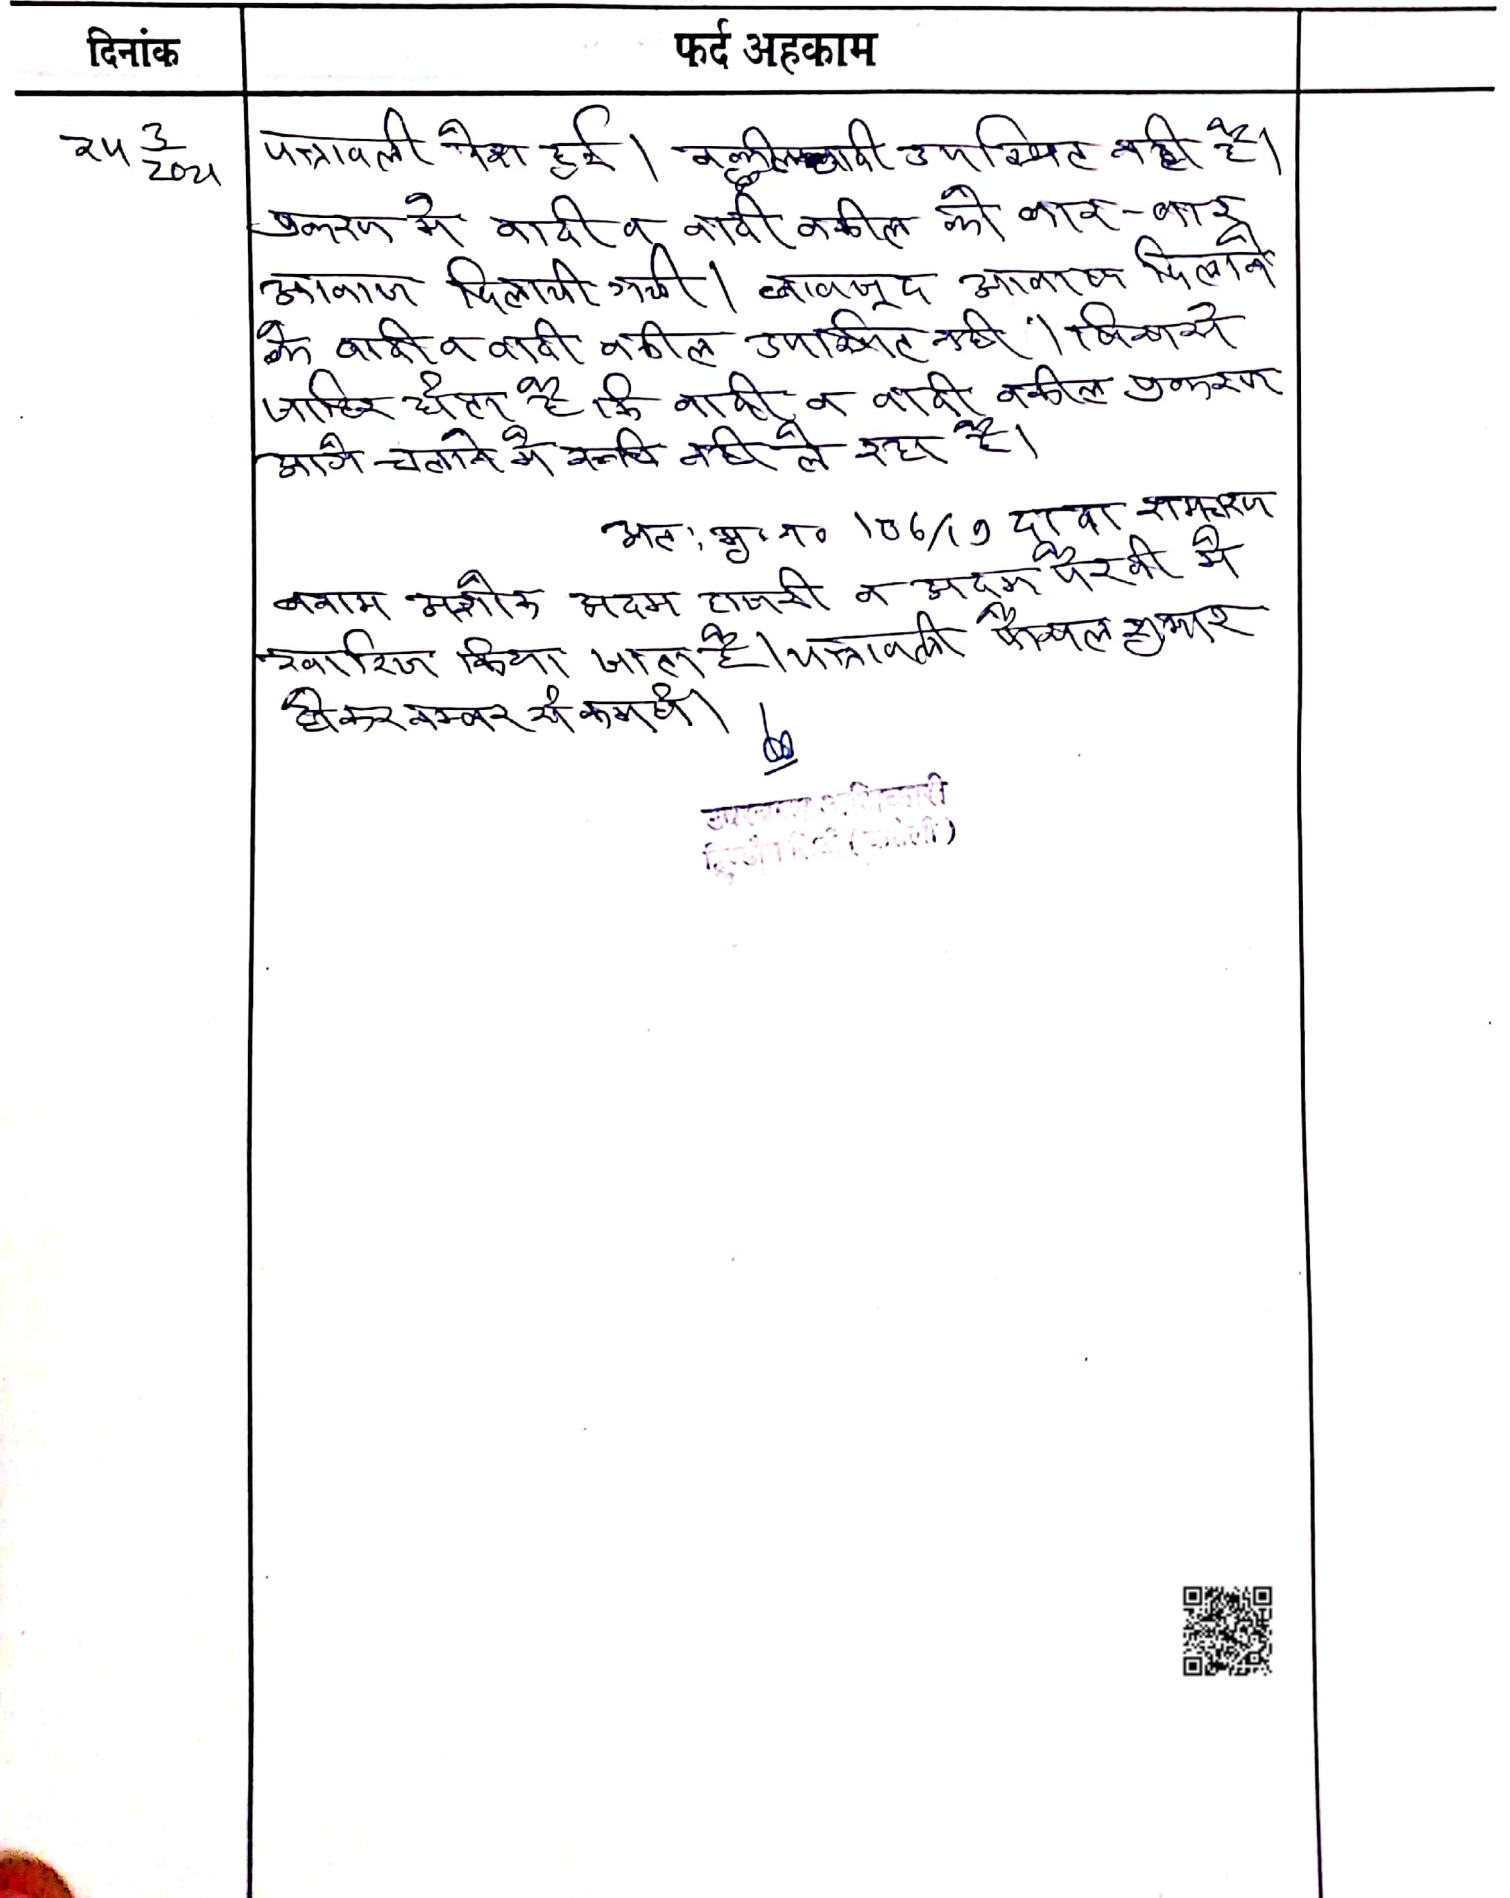 दिनांक
फर्द अहकाम
२५ 3/2021
पत्रावली पेश हुई। वकील वादी उपस्थित नही है।
प्रकरण मे वादी व वादी वकील को बार-बार
आवाज दिलायी गयी। बावजूद आवाज दिलाने
के वादी व वादी वकील उपस्थित नही। जिससे
जाहिर होता है कि वादी व वादी वकील प्रकरण
आगे चलाने मे रूचि नही ले रहा है।
अत: मु. न० 106/19 दावा रामचरण
बनाम अशोक अदम हाजरी व अदम पैरवी मे
खारिज किया जाता है। पत्रावली फैसल शुमार
होकर नम्बर से कम हो।
उपखण्ड अधिकारी
हिण्डौन सिटी (करौली)